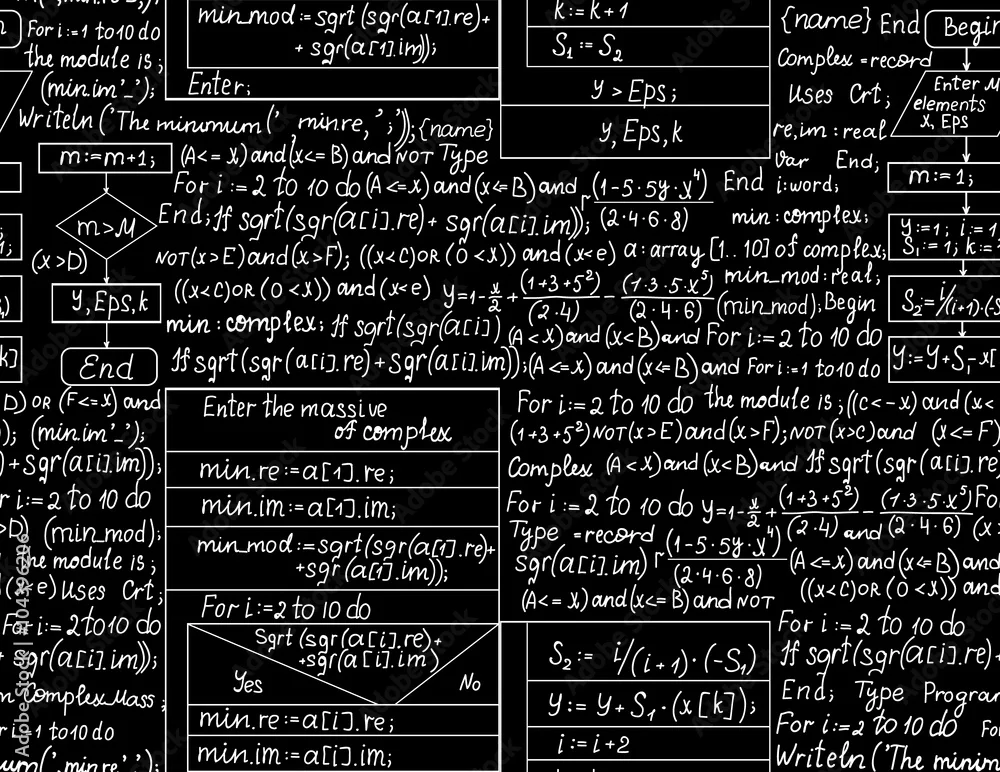 For i:=1 to 10 do
the module is ;
(min.im'_');
Writeln ('The minumum(' min.re, ',');{name}
min_mod := sgrt (sgr(a[1].re)+
+ sgr(a[1].im));
Enter;
k:= k+1
S₁ := S₂
y > Eps;
y, Eps, k
{name} End
Complex =record
Uses Crt;
re,im : real
Var End;
i:word;
min : complex;
Begin
Enter M
elements
x, Eps
m:=1;
y:=1; i:=1
S₁:=1; k:=
S₂:=i/(i+1)·(-S
y:=y+S₁·x[
m:=m+1;
m>M
(x>D)
y,Eps,k
End
(A<= x) and(x<= B) and NOT Type
For i := 2 to 10 do (A <=x) and (x<=B) and (1-5·5y·x⁴)/(2·4·6·8) End
End; If sgrt(sgr(a[i].re)+ sgr(a[i].im));
NOT(x>E) and (x>F); ((x<C)OR (O <x)) and (x<e) a : array [1..10] of complex;
((x<C)OR (O <x)) and (x<e) y=1-x/2+(1+3+5²)/(2·4)-(1·3·5·x⁵)/(2·4·6) min_mod:real;
(min_mod); Begin
min : complex; If sgrt(sgr(a[i]) (A <X) and (x<B) and For i:=2 to 10 do
If sgrt (sgr(a[i].re)+sgr(a[i].im));(A <=x) and (x<=B) and For i:=1 to 10 do
D) OR (F<=x) and
); (min.im'_');
)+sgr(a[i].im));
r i:= 2 to 10 do
>D) (min_mod);
the module is ;
< e) Uses Crt;
For i:= 2 to 10 do
+ sgr(a[i].im));
m Complex Mass ;
r i:=1 to 10 do
um(' min.re',';
Enter the massive
of complex
min.re:=a[1].re;
min.im:=a[1].im;
min_mod:=sgrt(sgr(a[1].re)+
+sgr (a[1].im));
For i:=2 to 10 do
Sgrt (sgr(a[i].re)+
+sgr(a[i].im)
Yes
No
min.re:=a[i].re;
min.im:=a[i].im;
For i:= 2 to 10 do the module is ;((C<-x) and (x<
(1+3+5²)NOT(x>E) and (x>F); NOT(x>C) and (x<=F)
Complex (A <X) and (x<B) and If sgrt(sgr(a[i].re
For i:= 2 to 10 do y=1-x/2+(1+3+5²)/(2·4) and -(1·3·5·x⁵)/(2·4·6) Fo
Type =record (1-5·5y·x⁴)/(2·4·6·8) (x
sgr(a[i].im) (A<=x) and (x<=B) and
(A<= x) and (x<= B) and NOT ((x<C)OR (O <x)) and
S₂:= i/(i+1)·(-S₁)
y:= y+S₁·(x[k]);
i:= i+2
For i:= 2 to 10 do
If sgrt(sgr(a[i].re)+
End; Type Program
For i:=2 to 10 do Fo
Writeln ('The minim
Adobe Stock | #104396206